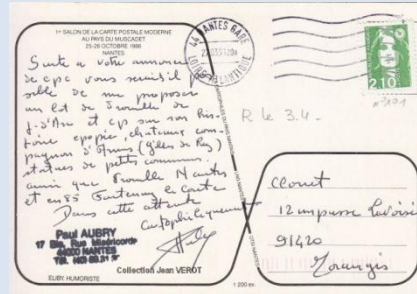 1er SALON DE LA CARTE POSTALE MODERNE
AU PAYS DU MUSCADET
25-26 OCTOBRE 1986
NANTES
Suite a votre annonce
de cpc vous serait il
sible de me proposer
un lot de
J. d'Arc et cp sur son his-
toire epopée, chateaux com-
pagnon d'armes (Gilles de Rais)
statues de petits communes.
ainsi que Nantes
et en 85 Fontenay le Comte
Dans cette attente
Cartophiliquement
Paul AUBRY
17 Bis, Rue Miséricorde
44000 NANTES
TEL. (40)
Collection Jean VEROT
ELIBY, HUMORISTE
1 200 ex.
44 NANTES GARE
LOIRE ATLANTIQUE
2,10
R le 3.4.
12 impasse Lavoisier
91420
Morangis